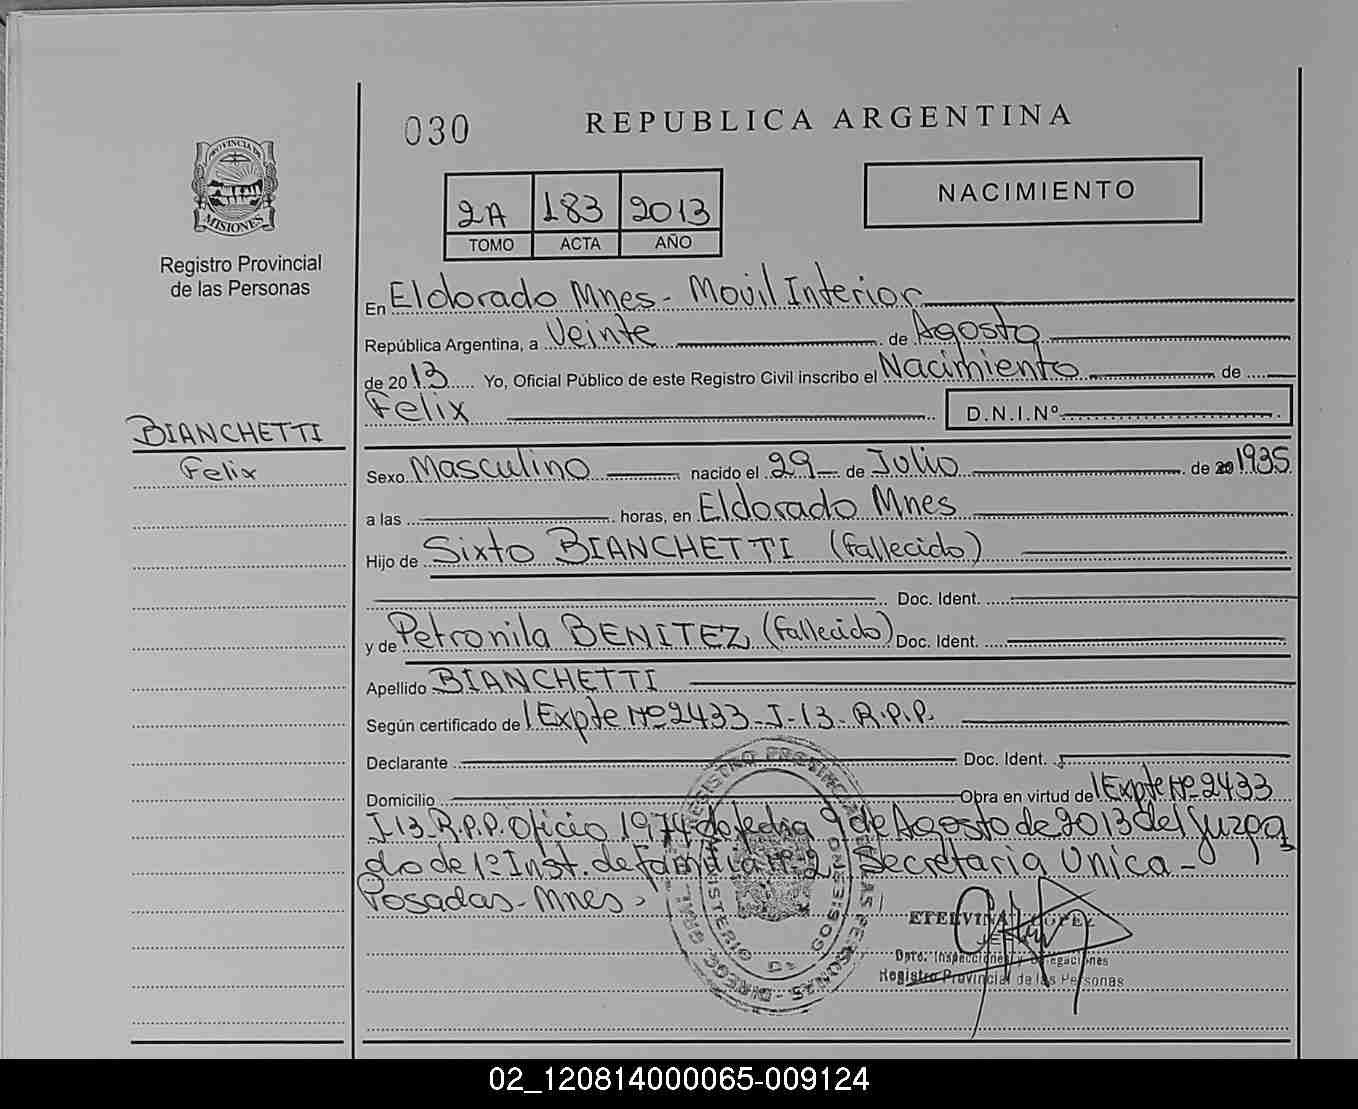 030
REPUBLICA ARGENTINA
PROVINCIA
MISIONES
Registro Provincial
de las Personas
2A 183 2013
TOMO ACTA AÑO
NACIMIENTO
En Eldorado Mnes- Movil Interior
República Argentina, a Veinte de Agosto
de 2013 Yo, Oficial Público de este Registro Civil inscribo el Nacimiento de
Felix D.N.I.Nº
BIANCHETTI
Felix
Sexo Masculino nacido el 29 de Julio de 20 1935
a las horas, en Eldorado Mnes
Hijo de Sixto BIANCHETTI (fallecido)
Doc. Ident.
y de Petronila BENITEZ (fallecido) Doc. Ident.
Apellido BIANCHETTI
Según certificado de Expte Nº 2433-I-13-R.P.P.
Declarante Doc. Ident.
Domicilio Obra en virtud de Expte Nº 2433
I-13-R.P.P. Oficio 1974 de fecha 9 de Agosto de 2013 del Juzga
do de 1º Inst. de familia Nº 2 Secretaria Unica-
Posadas-Mnes.
REGISTRO PROVINCIAL DE LAS PERSONAS
ETELVINA LOPEZ
JEFE
Dpto. Inspecciones y Delegaciones
Registro Provincial de las Personas
02_120814000065-009124